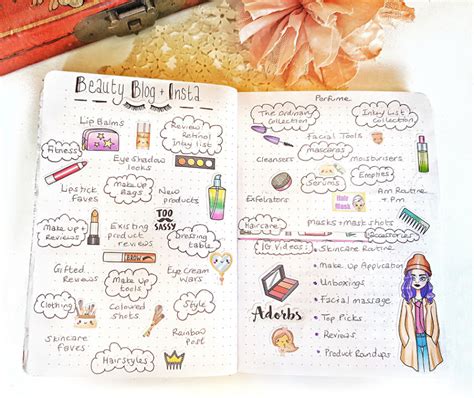 Beauty Blog + Insta
Lip Balms
Review
Retinol
Inkey list
Fitness
Eye Shadow
looks
Lipstick
Faves
Make Up
Bags
New
products
TOO
SASSY
Make up +
Reviews
Existing
product
reviews
Dressing
table
BROW
Gifted
Reviews
Make up
tools
Eye Cream
wars
Clothing
Coloured
Shots
Style
Skincare
Faves
Rainbow
Post
Hairstyles
Perfume
The Ordinary
Collection
Inkey List
Collection
Facial Tools
Mascaras
Cleansers
Moisturisers
Serums
Empties
Exfoliators
Hair
Mask
Am Routine
+ Pm
Haircare
masks + mask shots
Accessories
IG Videos:
Skincare Routine
Make Up Application
Unboxings
Facial massage
Adorbs
Top Picks
Reviews
Product Roundups